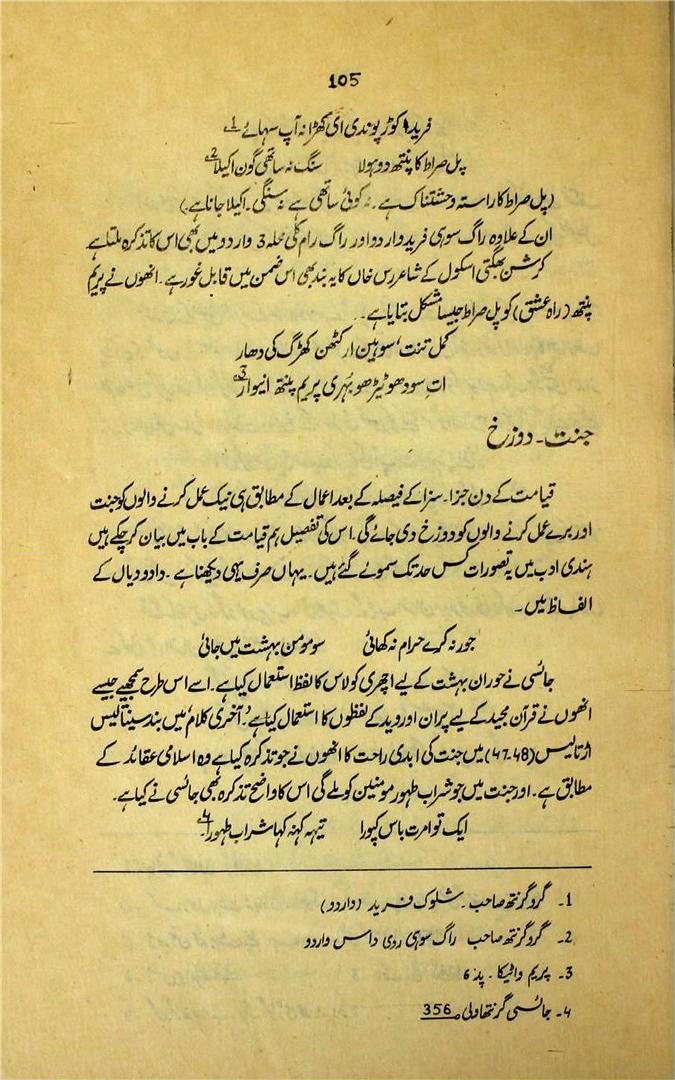 105
فریدا کوڑ پوندی ای کھڑا نہ آپ سہائے 1
پل صراط کا پنتھ دوہولا سنگ نہ ساتھی گون اکیلا 2
(پل صراط کا راستہ وحشتناک ہے۔ نہ کوئی ساتھی ہے نہ سنگی۔ اکیلا جانا ہے۔)
ان کے علاوہ راگ سوہی فرید وار دو اور راگ رام کلی محلہ 3 وار دو میں بھی اس کا تذکرہ ملتا ہے
کرشن بھگتی اسکول کے شاعر رس خاں کا یہ بند بھی اس ضمن میں قابل غور ہے۔ انھوں نے پریم
پنتھ (راہ عشق) کو پل صراط جیسا مشکل بتایا ہے۔
کمل تنت، سوہین ار کٹھن کھڑگ کی دھار
اتِ سودھو ٹیڑھو بہُری پریم پنتھ انیوار 3
جنت۔ دوزخ
قیامت کے دن جزا۔ سزا کے فیصلہ کے بعد اعمال کے مطابق ہی نیک عمل کرنے والوں کو جنت
اور برے عمل کرنے والوں کو دوزخ دی جائے گی۔ اس کی تفصیل ہم قیامت کے باب میں بیان کر چکے ہیں
ہندی ادب میں یہ تصورات کس حد تک سموئے گئے ہیں۔ یہاں صرف یہی دیکھنا ہے۔ دادو دیال کے
الفاظ میں۔
جور نہ کرے حرام نہ کھائی سو مومن بہشت میں جائی
جائسی نے حوران بہشت کے لیے اچھری کولاس کا لفظ استعمال کیا ہے۔ اسے اس طرح سمجھیے جیسے
انھوں نے قرآن مجید کے لیے پران اور وید کے لفظوں کا استعمال کیا ہے۔ 'آخری کلام' میں بند سینتالیس
اڑتالیس (47۔48) میں جنت کی ابدی راحت کا انھوں نے جو تذکرہ کیا ہے وہ اسلامی عقائد کے
مطابق ہے۔ اور جنت میں جو شراب طہور مومنین کو ملے گی اس کا واضح تذکرہ بھی جائسی نے کیا ہے۔
ایک تو امرت باس کپورا تیہہ کہنہ کہا شراب طہورا۔ ۴
1۔ گرو گرنتھ صاحب۔ شلوک فرید (وار دو)
2۔ گرو گرنتھ صاحب راگ سوہی روی داس وار دو
3۔ پریم واٹیکا۔ پد 6
۴۔ جائسی گرنتھاولی ص 356